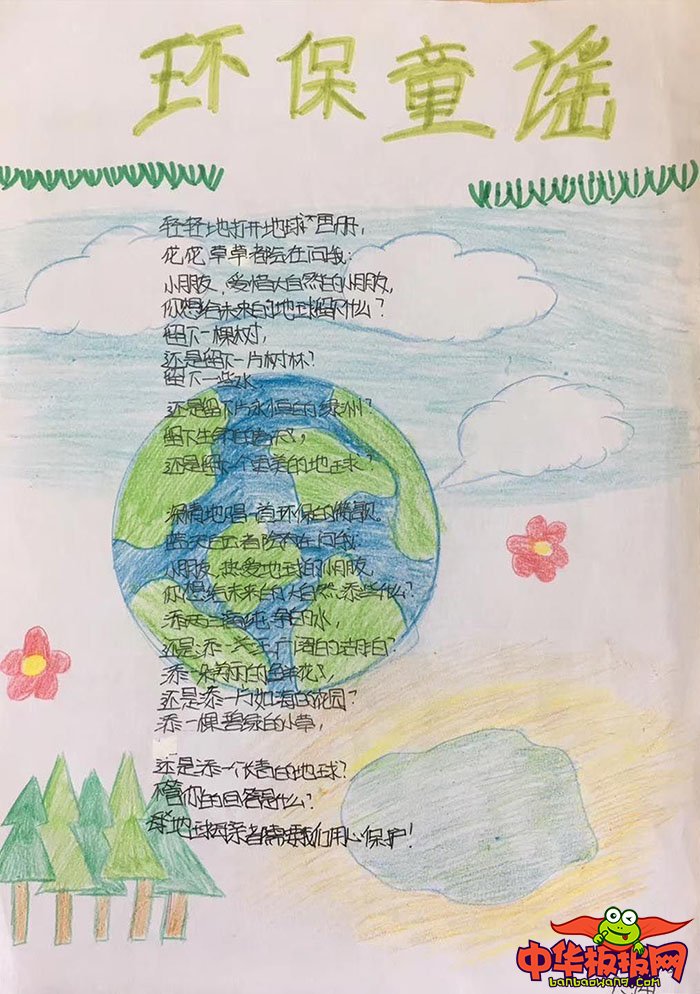 环保童谣
轻轻地打开地球画册,
花花草草都会在问我:
小朋友、爱惜大自然的小朋友,
你想给未来的地球留下什么?
留下一棵树,
还是留下一片树林?
留下一些水
还是留下片永恒的绿洲?
留下生命的
还是留下个完美的地球?
深情地唱一首环保的赞歌
蓝天白云都会在问我:
小朋友、热爱地球的小朋友,
你想给未来的大自然添些什么?
添两三滴纯净的水,
还是添
添一朵芬芳的鲜花,
还是添一片如海的花园?
添一棵碧绿的小草,
还是添一个 的地球?
不管你的回答是什么?
地球母亲都需要我们用心保护!
中华板报网
banbaowang.com